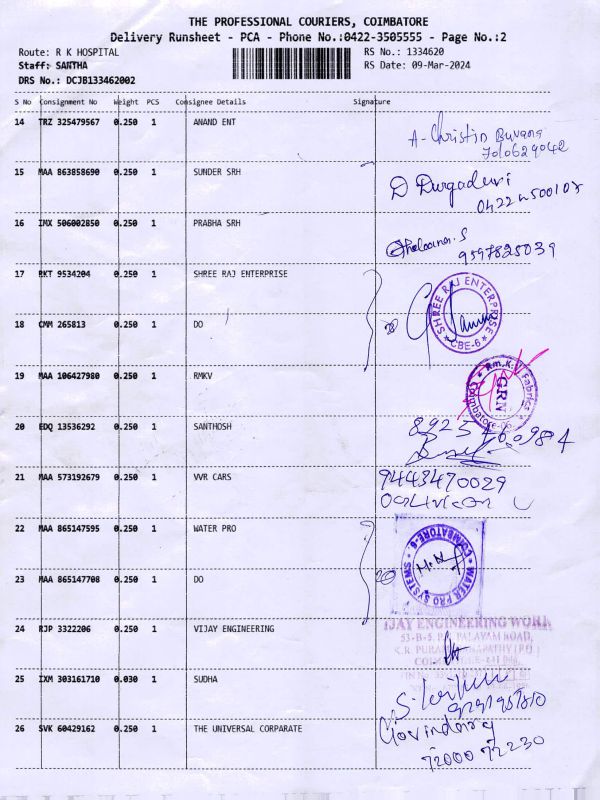 THE PROFESSIONAL COURIERS, COIMBATORE
Delivery Runsheet - PCA - Phone No.:0422-3505555 - Page No.:2
Route: R K HOSPITAL
RS No.: 1334620
Staff: SANTHA
RS Date: 09-Mar-2024
DRS No.: DCJB133462002
S No Consignment No Weight PCS Consignee Details Signature
14 TRZ 325479567 0.250 1 ANAND ENT
A-Christin Buvana
15 MAA 863858690 0.250 1 SUNDER SRH
D Durgadevi
16 IMX 506002850 0.250 1 PRABHA SRH
9597825039
17 RKT 9534204 0.250 1 SHREE RAJ ENTERPRISE
SHREE RAJ ENTERPRISE
CBE-6
18 CMM 265813 0.250 1 DO
19 MAA 106427980 0.250 1 RMKV
Rm.K.V Fabrics
GRN
Coimbatore-06
20 EDQ 13536292 0.250 1 SANTHOSH
21 MAA 573192679 0.250 1 VVR CARS
9443470029
22 MAA 865147595 0.250 1 WATER PRO
WATER PRO SYSTEMS
COIMBATORE-6
23 MAA 865147708 0.250 1 DO
24 RJP 3322206 0.250 1 VIJAY ENGINEERING
IJAY ENGINEERING WORK
PALAYAM ROAD,
25 IXM 303161710 0.030 1 SUDHA
26 SVK 60429162 0.250 1 THE UNIVERSAL CORPARATE
Govindaraj
72000 72230